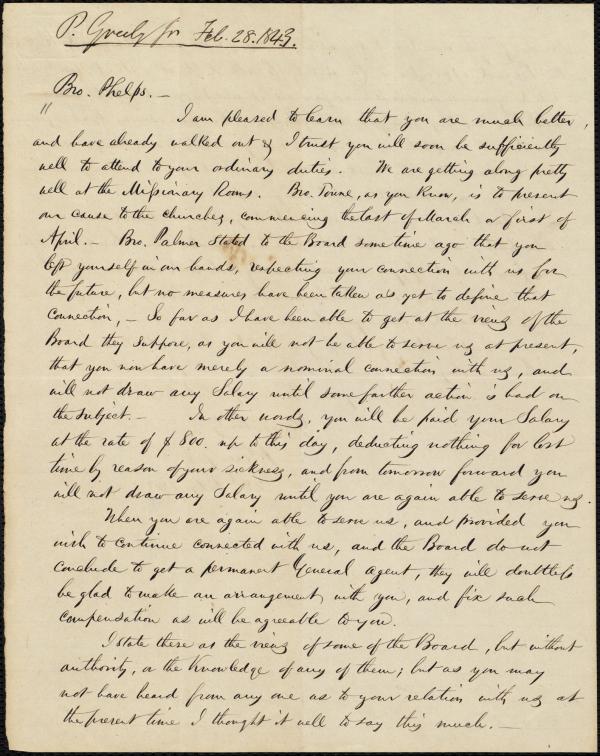 P. Greely Jr Feb. 28. 1843.
Bro. Phelps. —
" I am pleased to learn that you are much better,
and have already walked out & I trust you will soon be sufficiently
well to attend to your ordinary duties. We are getting along pretty
well at the Missionary Rooms. Bro. Towne, as you know, is to present
our cause to the churches, commencing the last of March or first of
April. — Bro. Palmer stated to the Board sometime ago that you
left yourself in our hands, respecting your connection with us for
the future, but no measures have been taken as yet to define that
connection, — So far as I have been able to get at the views of the
Board they suppose, as you will not be able to serve us at present,
that you now have merely a nominal connection with us, and
will not draw any Salary until some farther action is had on
the subject. — In other words, you will be paid your Salary
at the rate of $800. up to this day, deducting nothing for lost
time by reason of your sickness, and from tomorrow forward you
will not draw any Salary until you are again able to serve us.
When you are again able to serve us, and provided you
wish to continue connected with us, and the Board do not
conclude to get a permanent General Agent, they will doubtless
be glad to make an arrangement with you, and fix such
compensation as will be agreeable to you.
I state these as the views of some of the Board, but without
authority, or the knowledge of any of them; but as you may
not have heard from any one as to your relation with us at
the present time I thought it well to say this much. —